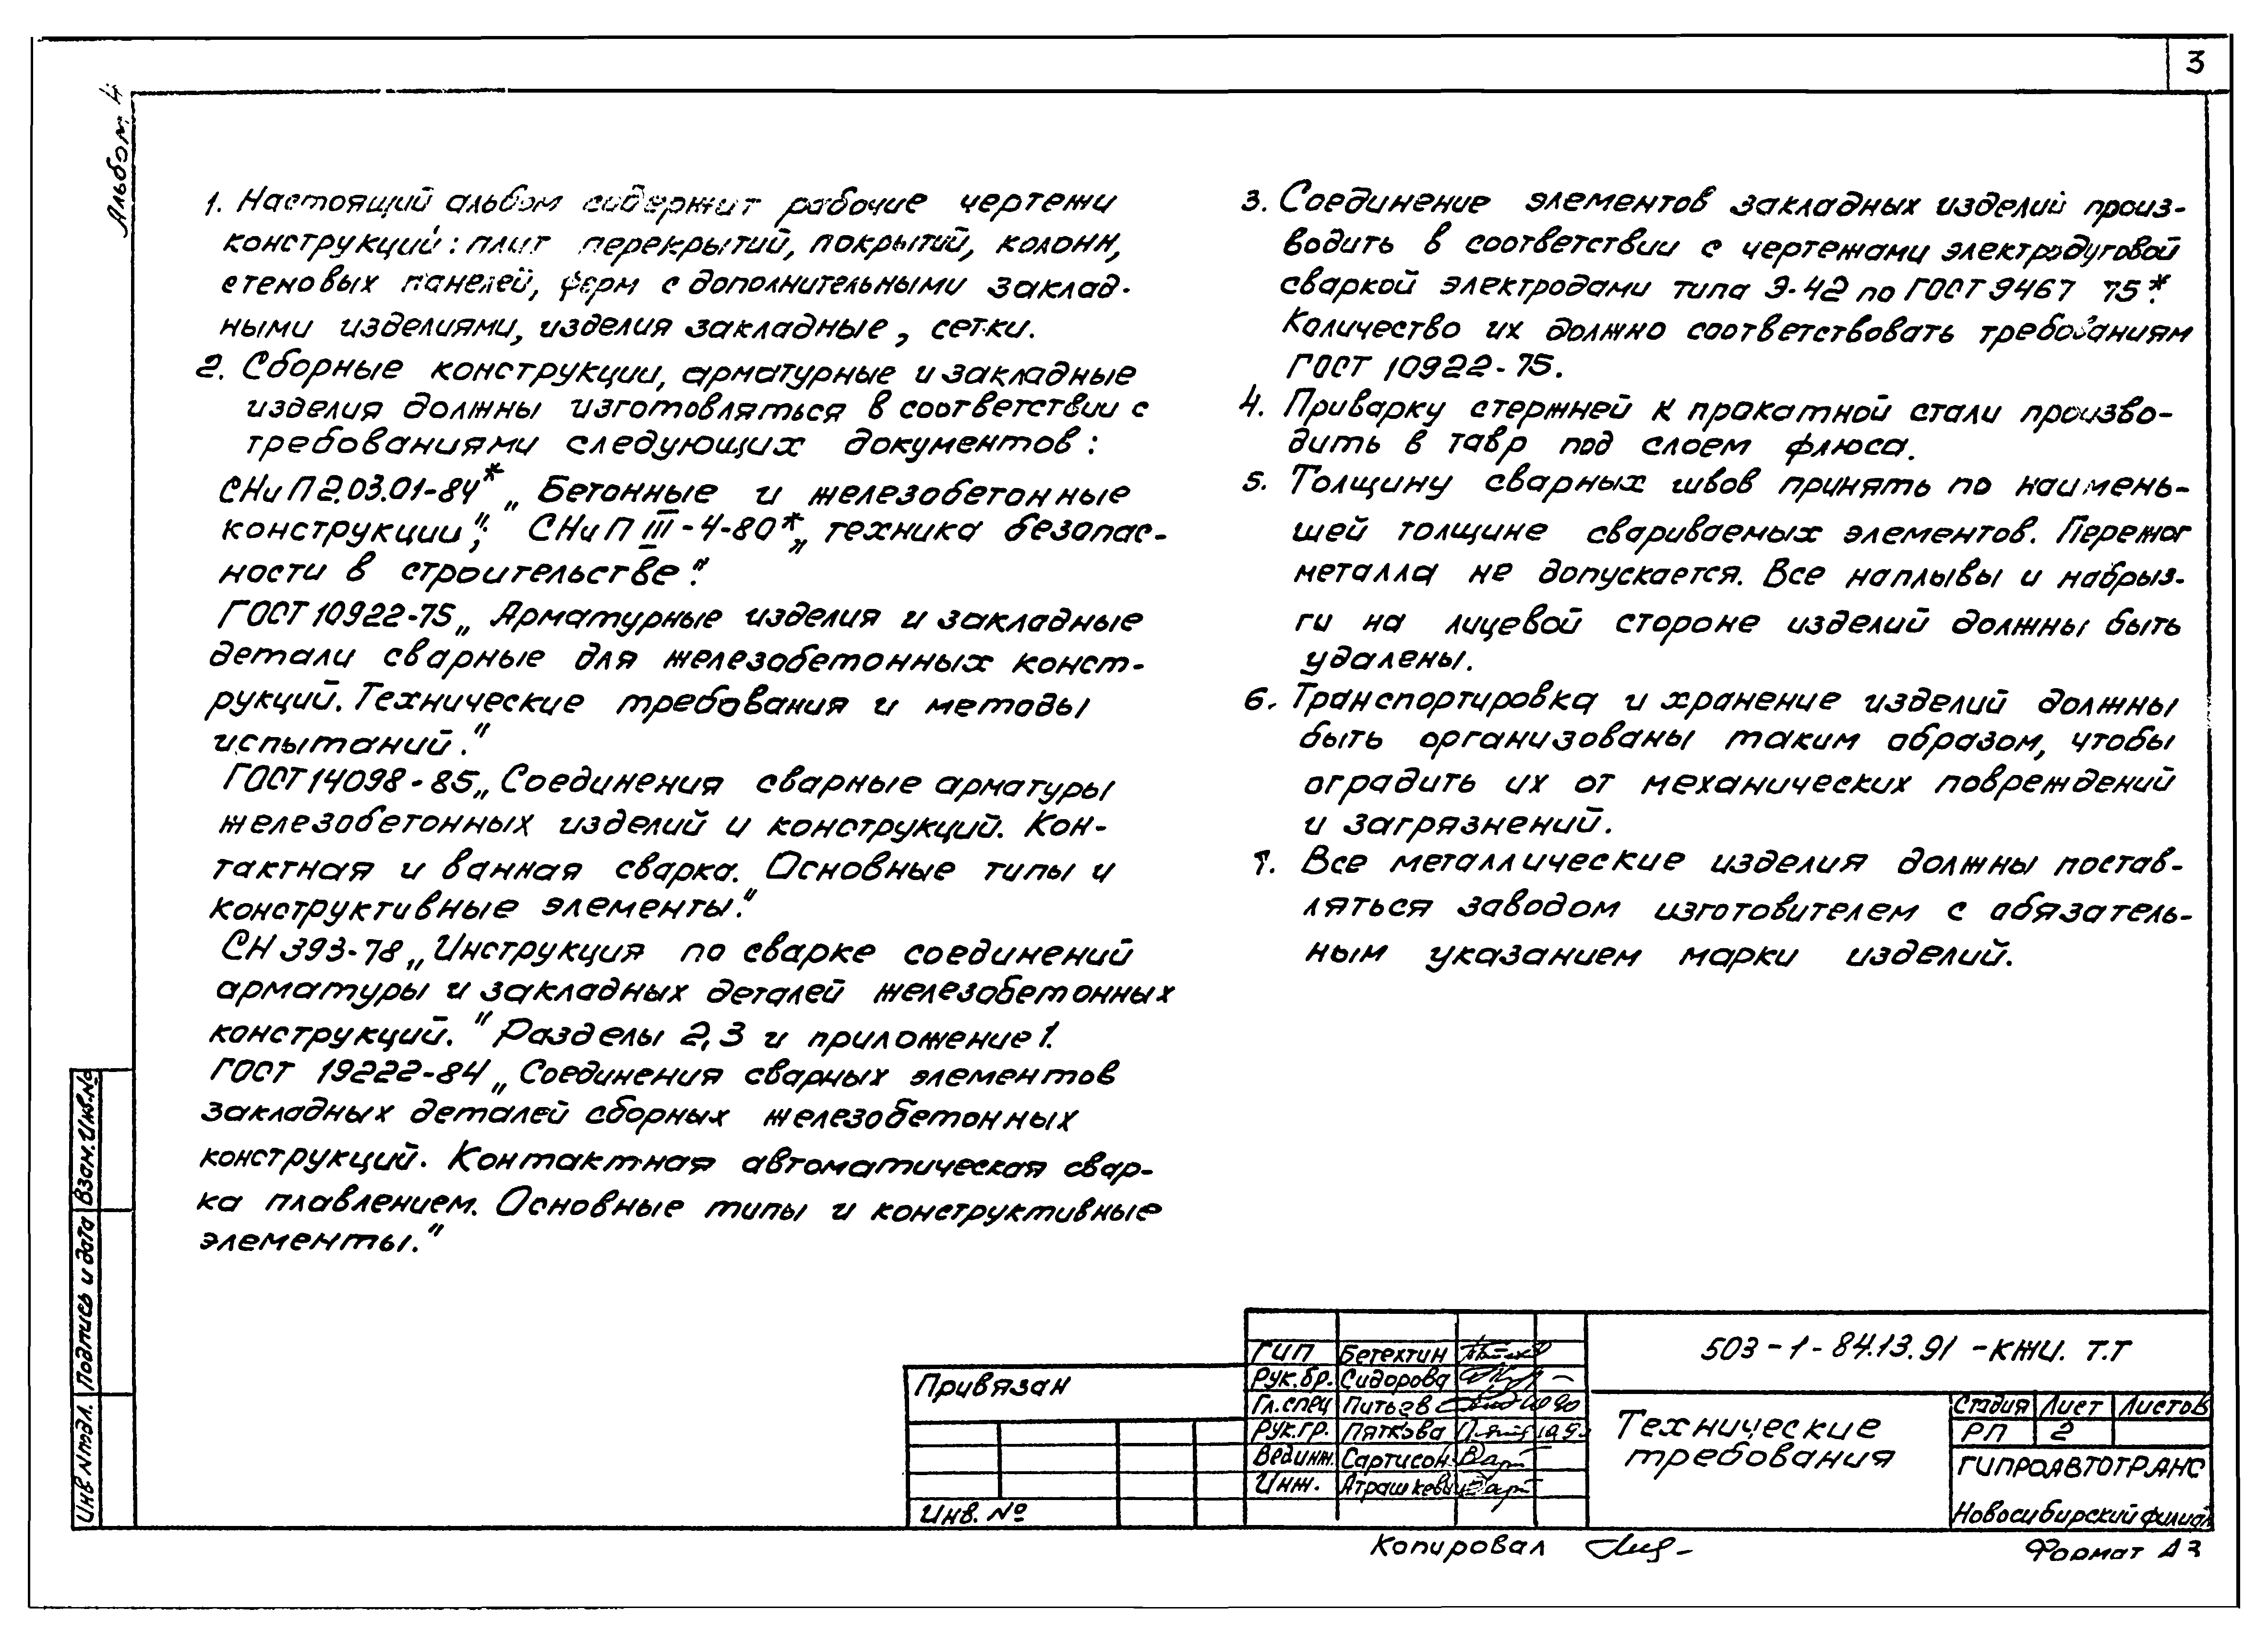 3
Альбом 4
1. Настоящий альбом содержит рабочие чертежи
конструкций: плит перекрытий, покрытий, колонн,
стеновых панелей, ферм с дополнительными заклад-
ными изделиями, изделия закладные, сетки.
2. Сборные конструкции, арматурные и закладные
изделия должны изготовляться в соответствии с
требованиями следующих документов:
СНиП 2.03.01-84* „Бетонные и железобетонные
конструкции“; СНиП III-4-80* „техника безопас-
ности в строительстве“.
ГОСТ 10922-75 „Арматурные изделия и закладные
детали сварные для железобетонных конст-
рукций. Технические требования и методы
испытаний.“
ГОСТ 14098-85 „Соединения сварные арматуры
железобетонных изделий и конструкций. Кон-
тактная и ванная сварка. Основные типы и
конструктивные элементы“.
СН 393-78 „Инструкция по сварке соединений
арматуры и закладных деталей железобетонных
конструкций.“ Разделы 2,3 и приложение 1.
ГОСТ 19222-84 „Соединения сварных элементов
закладных деталей сборных железобетонных
конструкций. Контактная автоматическая свар-
ка плавлением. Основные типы и конструктивные
элементы.“
3. Соединение элементов закладных изделий произ-
водить в соответствии с чертежами электродуговой
сваркой электродами типа Э-42 по ГОСТ 9467 75*.
Количество их должно соответствовать требованиям
ГОСТ 10922-75.
4. Приварку стержней к прокатной стали произво-
дить в тавр под слоем флюса.
5. Толщину сварных швов принять по наимень-
шей толщине свариваемых элементов. Пережог
металла не допускается. Все наплывы и набрыз-
ги на лицевой стороне изделий должны быть
удалены.
6. Транспортировка и хранение изделий должны
быть организованы таким образом, чтобы
оградить их от механических повреждений
и загрязнений.
7. Все металлические изделия должны постав-
ляться заводом изготовителем с обязатель-
ным указанием марки изделий.
Взам.Инв.№
Подпись и дата
Инв № подл.
Привязан
Инв. №
ГИП Бетехтин
Рук.бр. Сидорова
Гл.спец Питьев
Рук.гр. Пяткова
Вединж. Сартисон
Инж. Атрашкевич
503-1-84.13.91 -КЖИ. Т.Т
Технические
требования
Стадия Лист Листов
РП 2
ГИПРОАВТОТРАНС
Новосибирский филиал
Копировал
Формат А3